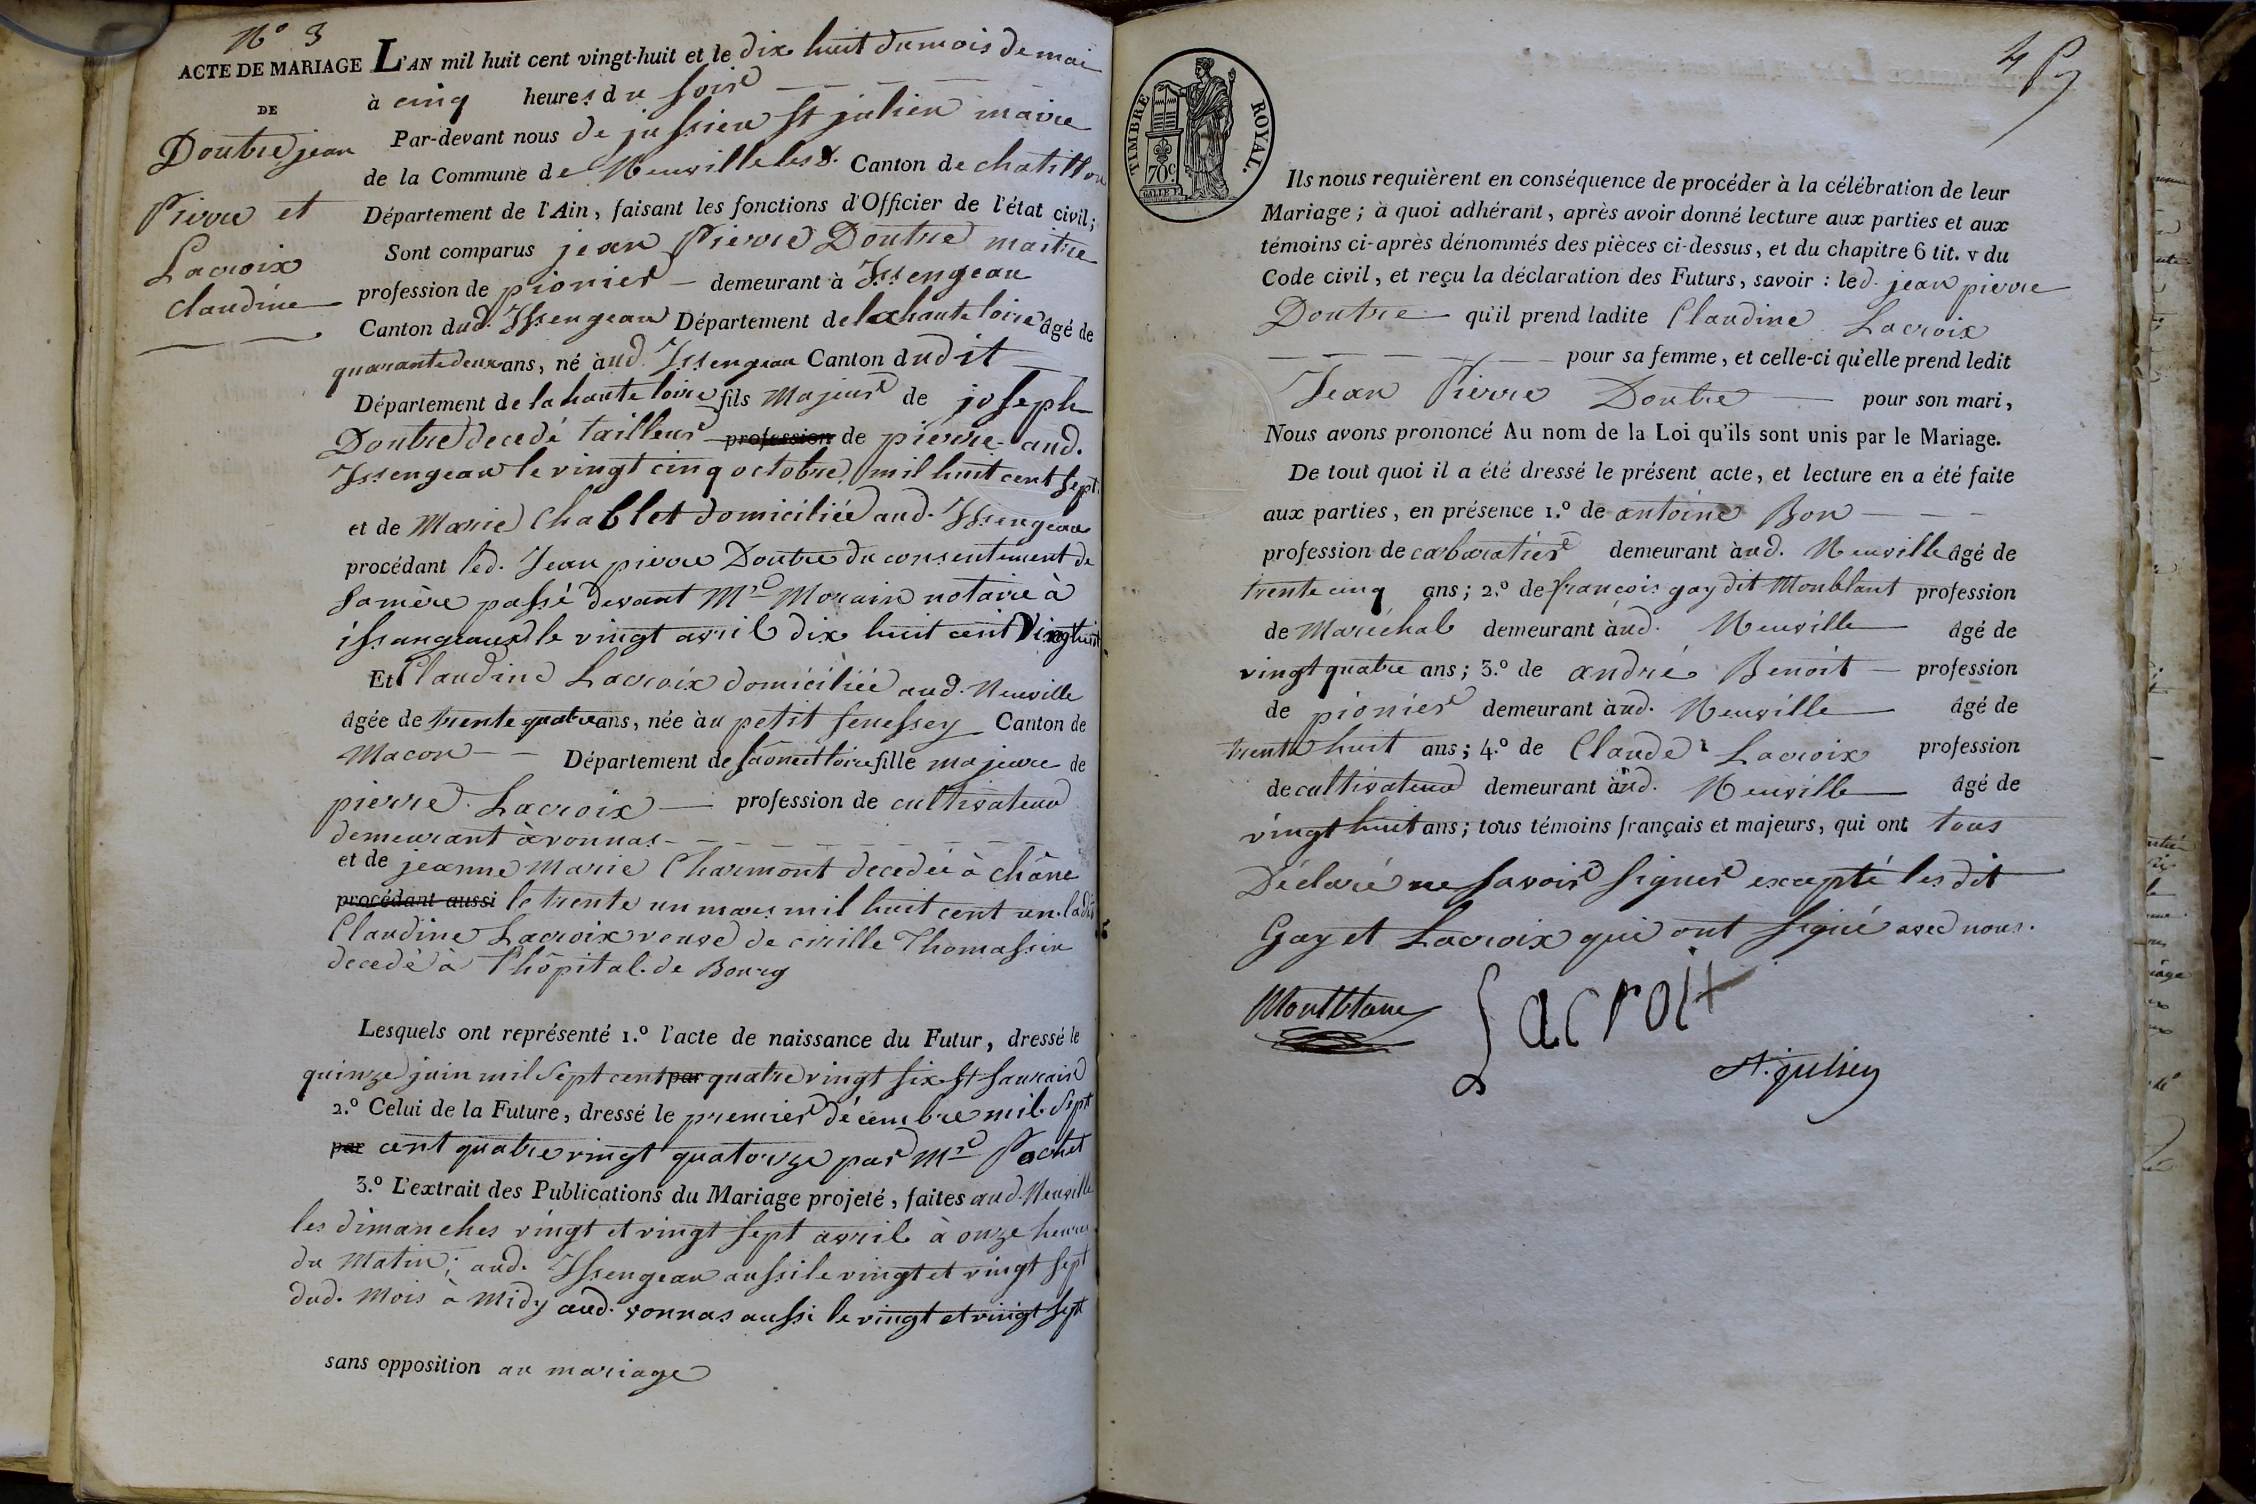 N.o 3
ACTE DE MARIAGE
DE
Doutre jean
Pierre et
Lacroix
Claudine
L'AN mil huit cent vingt-huit et le dix huit du mois de mai
à cinq heures du soir
Par-devant nous de jussieu st julien maire
de la Commune de Neuville les d. Canton de chatillon
Département de l'Ain, faisant les fonctions d'Officier de l'état civil;
Sont comparus jean Pierre Doutre maitre
profession de pionier demeurant à Issengeau
Canton dud. Issengeau Département de la haute loire âgé de
quarante deux ans, né àud. Issengeau Canton dudit
Département de la haute loire fils Majeur de joseph
Doutre decedé tailleur profession de pierre aud.
Issengeau le vingt cinq octobre mil huit cent sept
et de Marie Chablet domiciliée aud. Issengeau
procédant led. Jean pierre Doutre du consentement de
sa mère passé devant Mre Morain notaire à
issangeaux le vingt avril dix huit cent vingt huit
Et Claudine Lacroix domiciliée aud. Neuville
âgée de trente quatre ans, née àu petit senessey Canton de
Macon Département de saône et loire fille majeure de
pierre Lacroix profession de cultivateur
demeurant à vonnas
et de jeanne Marie Charmont decedée à châne
procédant aussi le trente un mars mil huit cent un. ladit
Claudine Lacroix veuve de cirille Thomassin
decedé à l'hôpital de Bourg
Lesquels ont représenté 1.o l'acte de naissance du Futur, dressé le
quinze juin mil sept cent par quatre vingt six st
2.o Celui de la Future, dressé le premier décembre mil sept
par cent quatre vingt quatorze par Mre Pochet
3.o L'extrait des Publications du Mariage projeté, faites aud. Neuville
les dimanches vingt et vingt sept avril à onze heures
du Matin; aud. Issengeau aussi le vingt et vingt sept
dud. Mois à Midy aud. vonnas aussi le vingt et vingt sept
sans opposition au mariage
4
TIMBRE ROYAL.
70c
Ils nous requièrent en conséquence de procéder à la célébration de leur
Mariage; à quoi adhérant, après avoir donné lecture aux parties et aux
témoins ci-après dénommés des pièces ci-dessus, et du chapitre 6 tit. v du
Code civil, et reçu la déclaration des Futurs, savoir : led. jean pierre
Doutre qu'il prend ladite Claudine Lacroix
pour sa femme, et celle-ci qu'elle prend ledit
Jean Pierre Doutre pour son mari,
Nous avons prononcé Au nom de la Loi qu'ils sont unis par le Mariage.
De tout quoi il a été dressé le présent acte, et lecture en a été faite
aux parties, en présence 1.o de antoine Bon
profession de cabaratier demeurant àud. Neuville âgé de
trente cinq ans; 2.o de françois gay dit Monblant profession
de Maréchal demeurant àud. Neuville âgé de
vingt quatre ans; 3.o de andré Benoit profession
de pionier demeurant àud. Neuville âgé de
trente huit ans; 4.o de Claude Lacroix profession
de cultivateur demeurant àud. Neuville âgé de
vingt huit ans; tous témoins français et majeurs, qui ont tous
Déclaré ne savoir signer excepté les dit
Gay et Lacroix qui ont signé avec nous.
Montblanc
Lacroix
st. julien